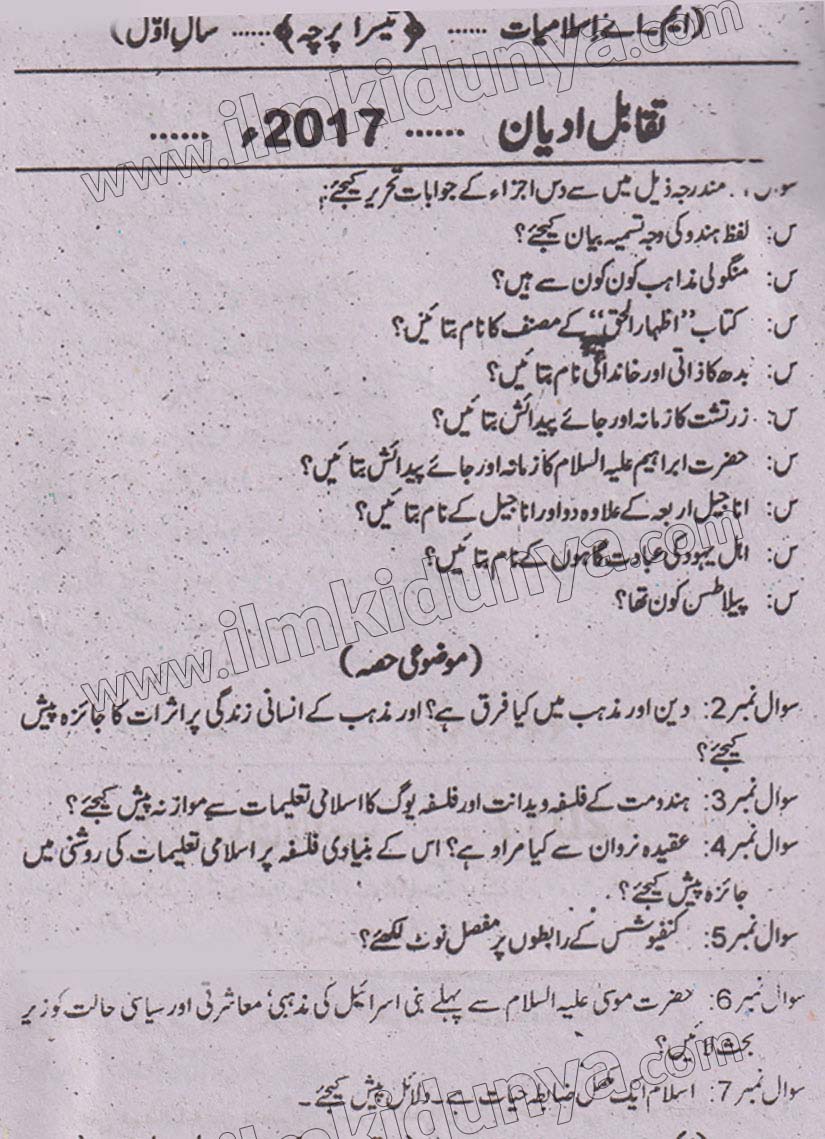 (ایم۔اے اسلامیات ...... ﴿تیسرا پرچہ﴾ ...... سالِ اوّل)
تقابل ادیان ...... 2017ء ......
سوال .. مندرجہ ذیل میں سے دس اجزاء کے جوابات تحریر کیجئے:
س: لفظ ہندو کی وجہ تسمیہ بیان کیجئے؟
س: منگولی مذاہب کون کون سے ہیں؟
س: کتاب "اظہار الحق" کے مصنف کا نام بتائیں؟
س: بدھ کا ذاتی اور خاندانی نام بتائیں؟
س: زرتشت کا زمانہ اور جائے پیدائش بتائیں؟
س: حضرت ابراہیم علیہ السلام کا زمانہ اور جائے پیدائش بتائیں؟
س: اناجیل اربعہ کے علاوہ دو اور اناجیل کے نام بتائیں؟
س: اہل یہود کی عبادت گاہوں کے نام بتائیں؟
س: پیلاطس کون تھا؟
(موضوعی حصہ)
سوال نمبر 2: دین اور مذہب میں کیا فرق ہے؟ اور مذہب کے انسانی زندگی پر اثرات کا جائزہ پیش
کیجئے؟
سوال نمبر 3: ہندومت کے فلسفہ ویدانت اور فلسفہ یوگ کا اسلامی تعلیمات سے موازنہ پیش کیجئے؟
سوال نمبر 4: عقیدہ نروان سے کیا مراد ہے؟ اس کے بنیادی فلسفہ پر اسلامی تعلیمات کی روشنی میں
جائزہ پیش کیجئے؟
سوال نمبر 5: کنفیوشس کے رابطوں پر مفصل نوٹ لکھئے؟
سوال نمبر 6: حضرت موسیٰ علیہ السلام سے پہلے بنی اسرائیل کی مذہبی' معاشرتی اور سیاسی حالت کو زیر
بحث لائیں؟
سوال نمبر 7: اسلام ایک مکمل ضابطہ حیات ہے۔ دلائل پیش کیجئے۔
www.ilmkidunya.com
www.ilmkidunya.com
www.ilmkidunya.com